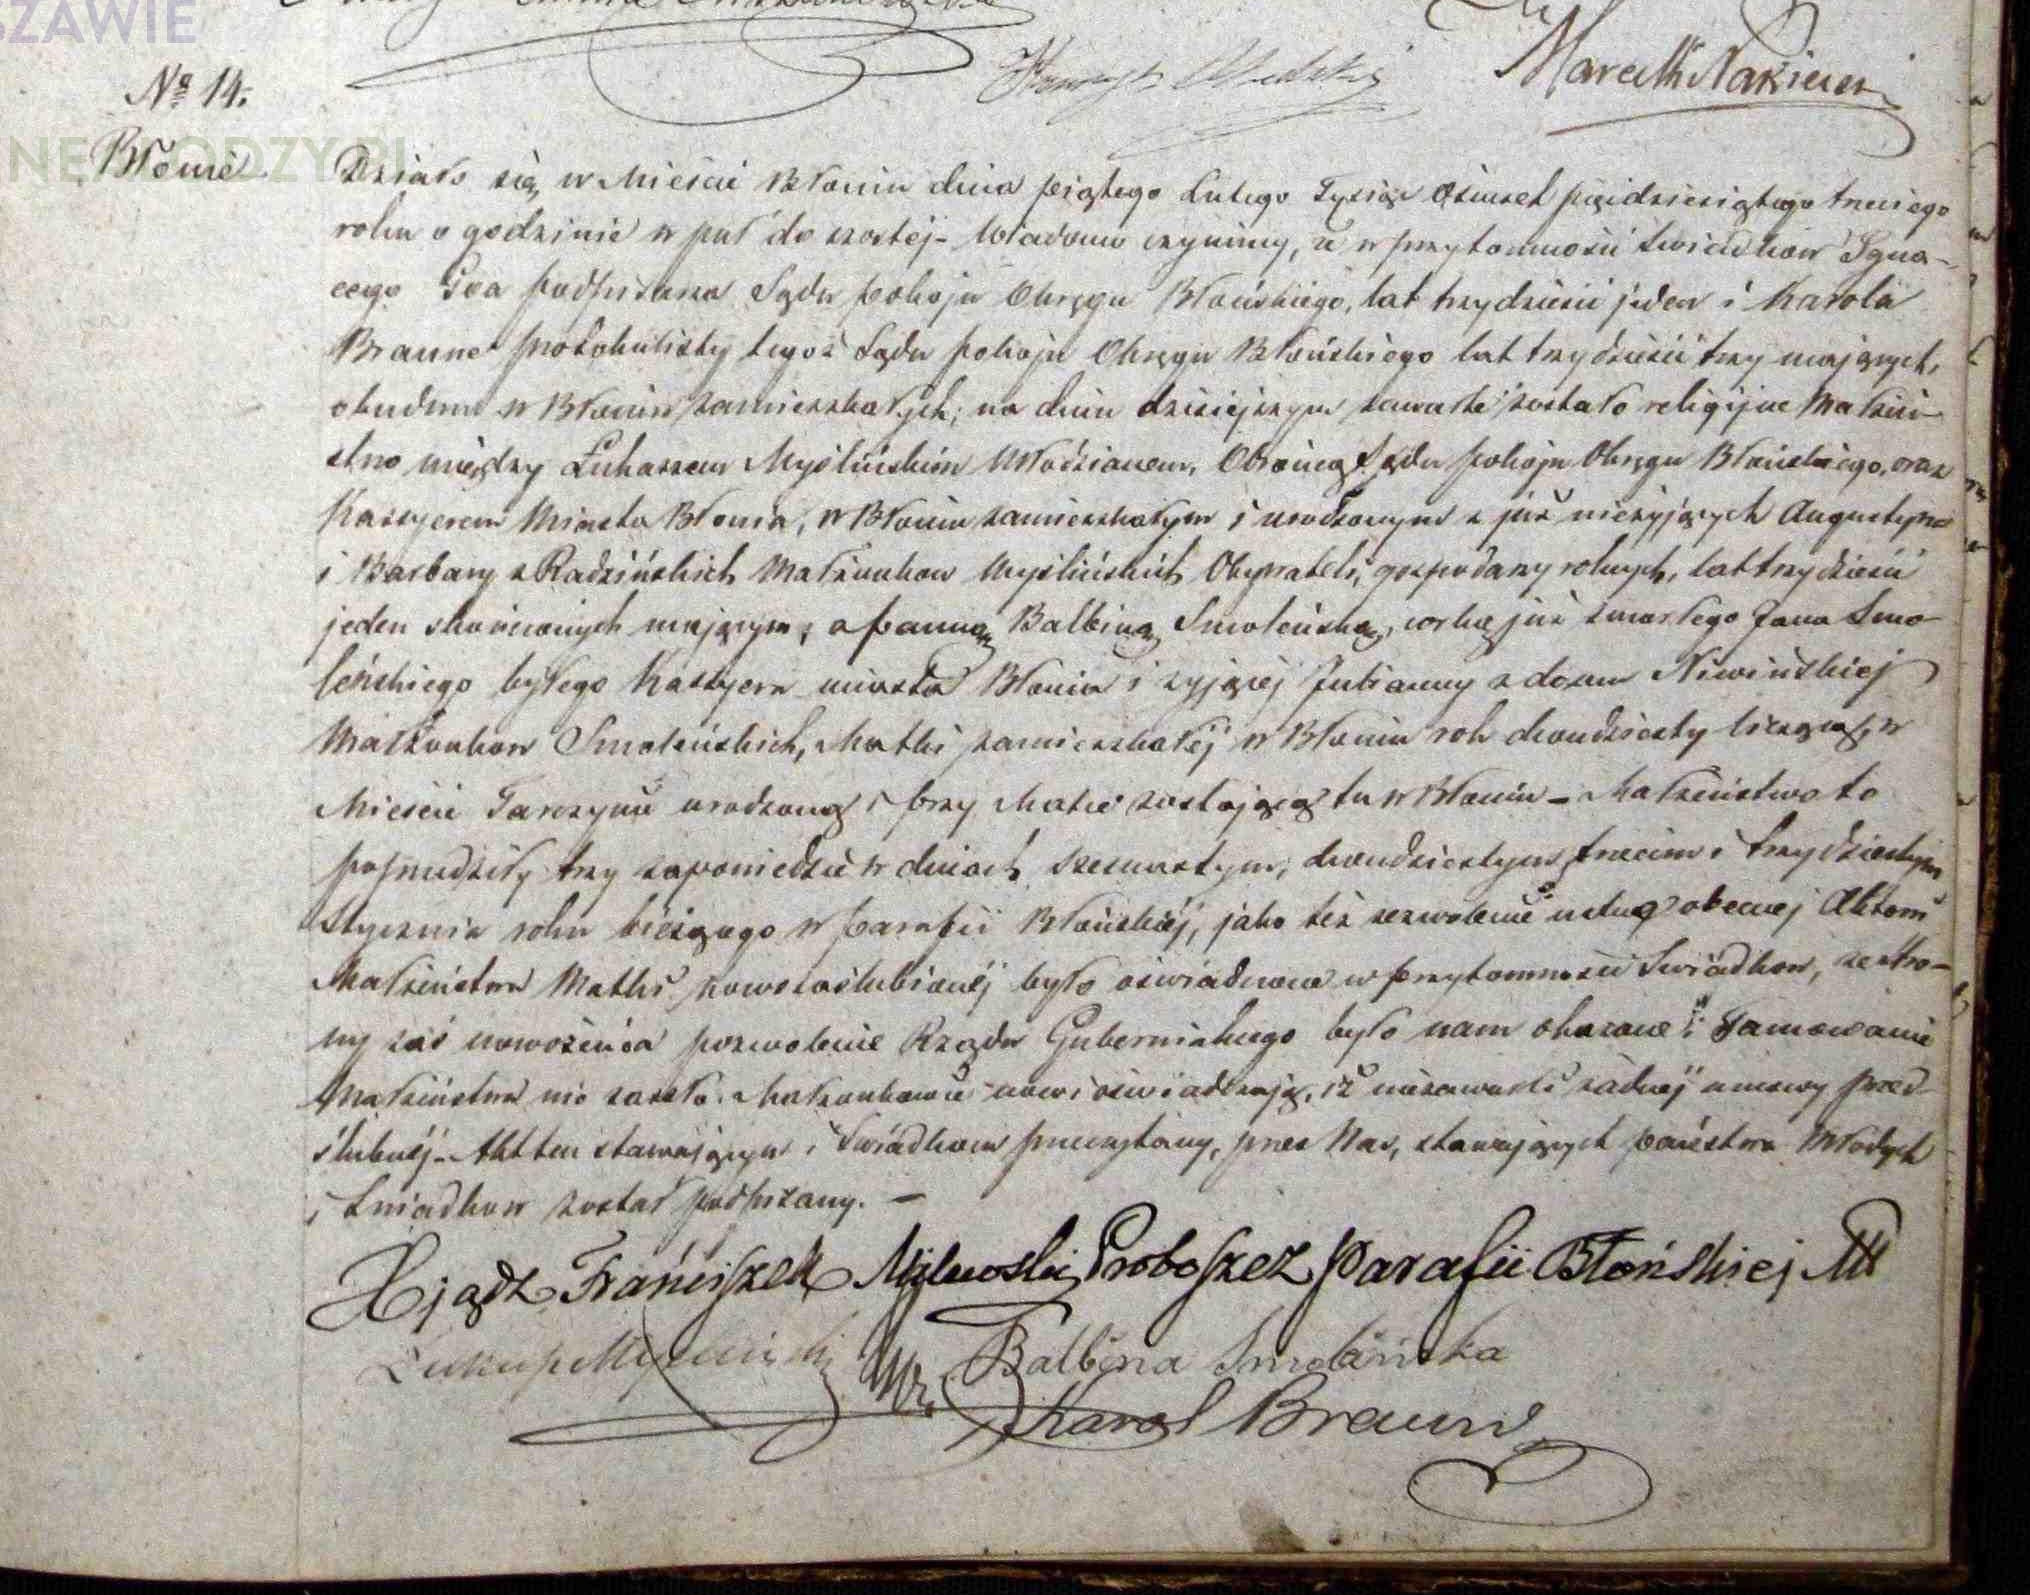 SZAWIE
NE
ODZY.PL
Marcelli Nakieski
No 14.
Błonie
Działo się, w Mieście Błoniu dnia piątego Lutego Tysiąc Ośmset pięćdziesiątego trzeciego
roku o godzinie w puł do szostej - Wiadomo czynimy, że w przytomności świadków Igna-
cego podpisarza Sądu pokoju Okręgu Błońskiego, lat trzydzieści jeden i Karola
Braune protokulisty tegoż Sądu pokoju Okręgu Błońskiego lat trzydzieści trzy mających,
obudwu w Błoniu zamieszkałych; na dniu dzisiejszym zawarte zostało religijne Małżeń-
stwo między Łukaszem Myślińskim Młodzianem, Obrońcą Sądu pokoju Okręgu Błońskiego, oraz
Kassyerem Miasta Błonia, w Błoniu zamieszkałym i urodzonym z już nieżyjących Augustyna
i Barbary z Radzińskich Małżonkow Myślińskich Obywateli, gospodarzy rolnych, lat trzydzieści
jeden skończonych mającym; a panną Balbiną Smoleńską, corką już zmarłego Jana Smo-
leńskiego byłego Kassyera miasta Błonia i żyjącej Julianny z domu Niwińskiej
Małżonkow Smoleńskich, Matki zamieszkałej w Błoniu rok dwudziesty liczącą, w
Mieście Tarczynie urodzoną i przy Matce zostającą tu w Błoniu - Małżeństwo to
poprzedziły trzy zapowiedzie w dniach szesnastym, dwudziestym trzecim i trzydziestym
Stycznia roku bieżącego w parafii Błońskiéj, jako też zezwolenie ustne obecnej Aktowi
Małżeństwa Matki nowozaślubionéj było oświadczone w przytomności Świadkow, ze stro-
ny zaś nowożeńca pozwolenie Rządu Gubernialnego było nam okazane i Tamowanie
Małżeństwa nie zaszło. Małżonkowie nowi oświadczają, iż niezawarli żadnéj umowy przed-
ślubnéj - Akt ten stawającym i Świadkom przeczytany, przez Nas, stawających państwa Młodych
i Świadkow został podpisany. -
Xjądz Franciszek Milewski Proboszcz Parafii Błońskiej
Łukasz Myśliński Balbina Smoleńska
Karol Braune